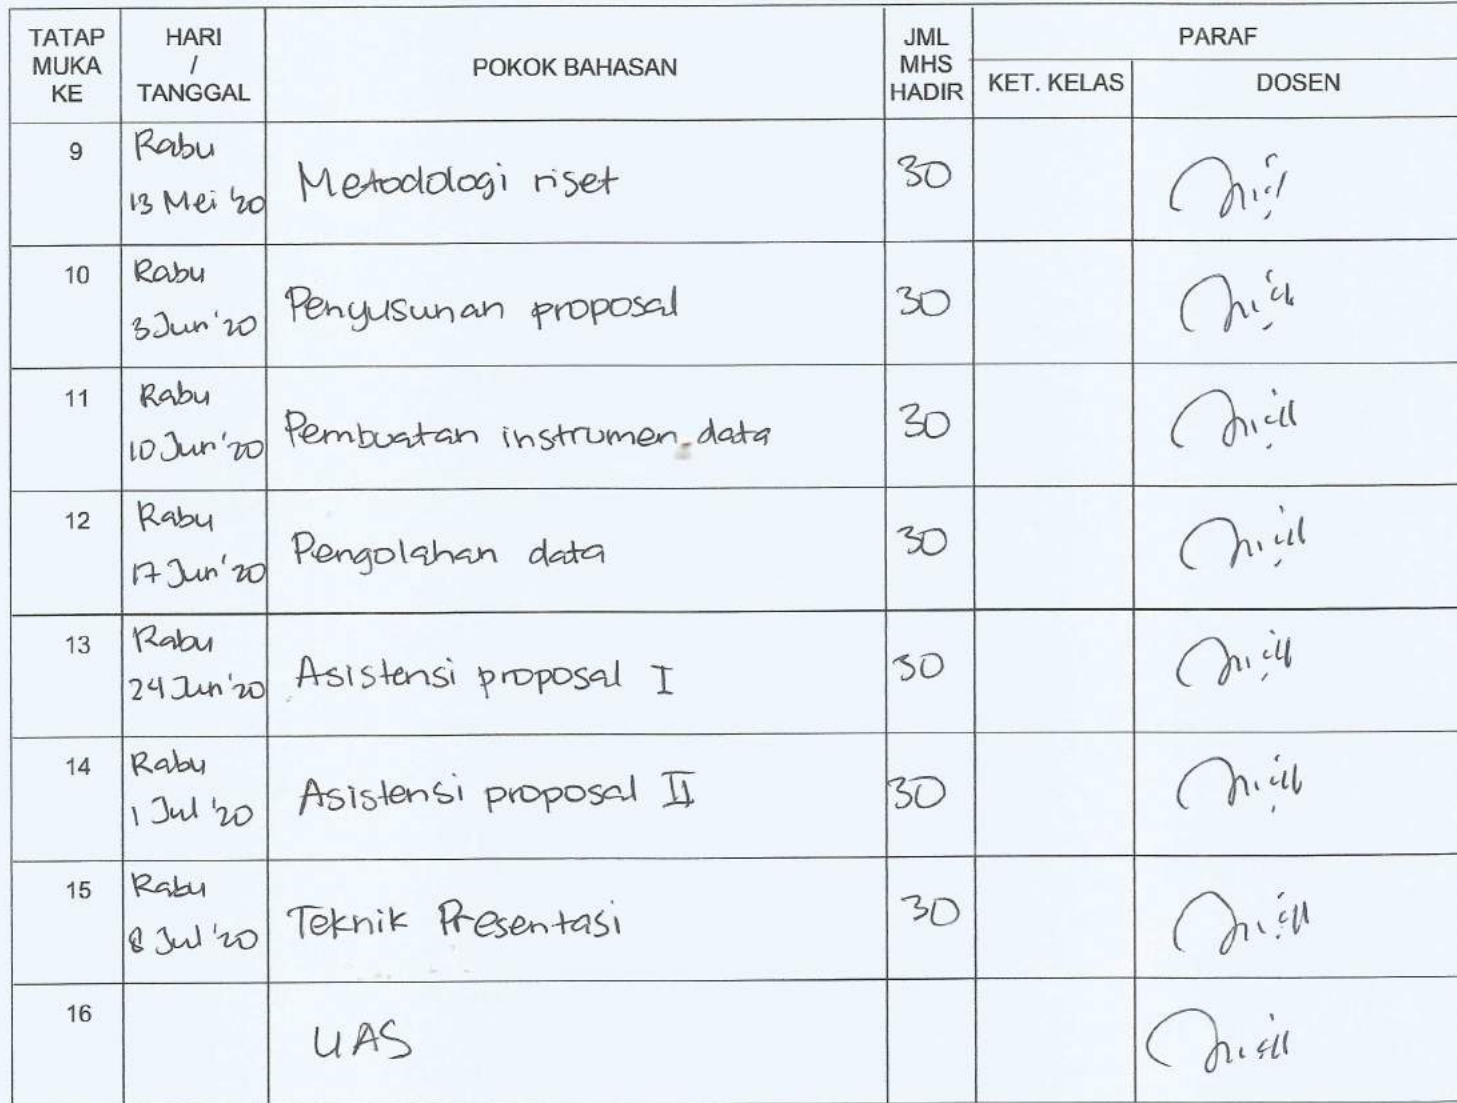 TATAP MUKA KE
HARI / TANGGAL
POKOK BAHASAN
JML MHS HADIR
PARAF
KET. KELAS
DOSEN
9
Rabu
13 Mei '20
Metodologi riset
30
10
Rabu
3 Jun '20
Penyusunan proposal
30
11
Rabu
10 Jun '20
Pembuatan instrumen data
30
12
Rabu
17 Jun '20
Pengolahan data
30
13
Rabu
24 Jun '20
Asistensi proposal I
30
14
Rabu
1 Jul '20
Asistensi proposal II
30
15
Rabu
8 Jul '20
Teknik Presentasi
30
16
UAS